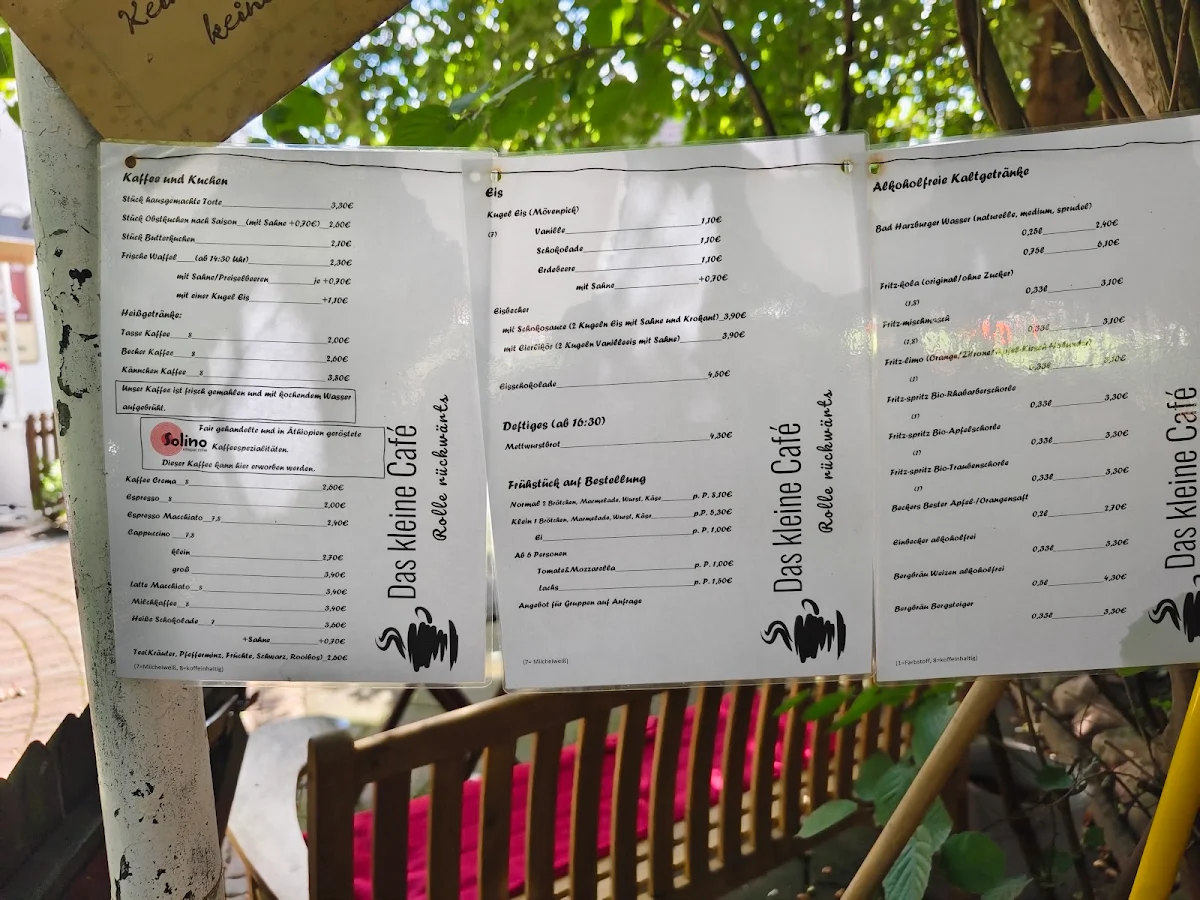 keine
Kaffee und Kuchen
Stück hausgemachte Torte 3,30€
Stück Obstkuchen nach Saison (mit Sahne +0,70€) 2,60€
Stück Butterkuchen 2,10€
Frische Waffel (ab 14:30 Uhr) 2,30€
mit Sahne/Preiselbeeren je +0,70€
mit einer Kugel Eis +1,10€
Heißgetränke:
Tasse Kaffee 8 2,00€
Becher Kaffee 8 2,60€
Kännchen Kaffee 8 3,80€
Unser Kaffee ist frisch gemahlen und mit kochendem Wasser
aufgebrüht.
Solino
Fair gehandelte und in Äthiopien geröstete
Kaffeespezialitäten.
Dieser Kaffee kann hier erworben werden.
Kaffee Crema 8 2,60€
Espresso 8 2,00€
Espresso Macchiato 7,8 2,40€
Cappuccino 7,8
klein 2,70€
groß 3,40€
Latte Macchiato 8 3,40€
Milchkaffee 8 3,40€
Heiße Schokolade 7 3,60€
+Sahne +0,70€
Tee(Kräuter, Pfefferminz, Früchte, Schwarz, Rooibos) 2,60€
(7=Milcheiweiß, 8=koffeinhaltig)
Das kleine Café
Rolle rückwärts
Eis
Kugel Eis (Mövenpick)
(7) Vanille 1,10€
Schokolade 1,10€
Erdbeere 1,10€
mit Sahne +0,70€
Eisbecher
mit Schokosauce (2 Kugeln Eis mit Sahne und Krokant) 3,90€
mit Eierlikör (2 Kugeln Vanilleeis mit Sahne) 3,90€
Eisschokolade 4,50€
Deftiges (ab 16:30)
Mettwurstbrot 4,30€
Frühstück auf Bestellung
Normal 2 Brötchen, Marmelade, Wurst, Käse p. P. 8,10€
Klein 1 Brötchen, Marmelade, Wurst, Käse p.P. 5,30€
Ei p. P. 1,00€
Ab 6 Personen
Tomate&Mozzarella p. P. 1,00€
Lachs p. P. 1,50€
Angebot für Gruppen auf Anfrage
(7= Milcheiweiß)
Das kleine Café
Rolle rückwärts
Alkoholfreie Kaltgetränke
Bad Harzburger Wasser (naturelle, medium, sprudel)
0,25l 2,40€
0,75l 6,10€
Fritz-kola (original/ohne Zucker)
(1,8) 0,33l 3,10€
Fritz-mischmasch
(1,8) 0,33l 3,10€
Fritz-limo (Orange/Zitrone/Apfel-Kirsch-Holunder)
(1) 0,33l
Fritz-spritz Bio-Rhabarberschorle
(1) 0,33l 3,30€
Fritz-spritz Bio-Apfelschorle
(1) 0,33l 3,30€
Fritz-spritz Bio-Traubenschorle
(1) 0,33l 3,30€
Beckers Bester Apfel-/Orangensaft
0,2l 2,70€
Einbecker alkoholfrei
0,33l 3,30€
Bergbräu Weizen alkoholfrei
0,5l 4,30€
Bergbräu Bergsteiger
0,33l 3,30€
(1=Farbstoff, 8=koffeinhaltig)
Das kleine Café